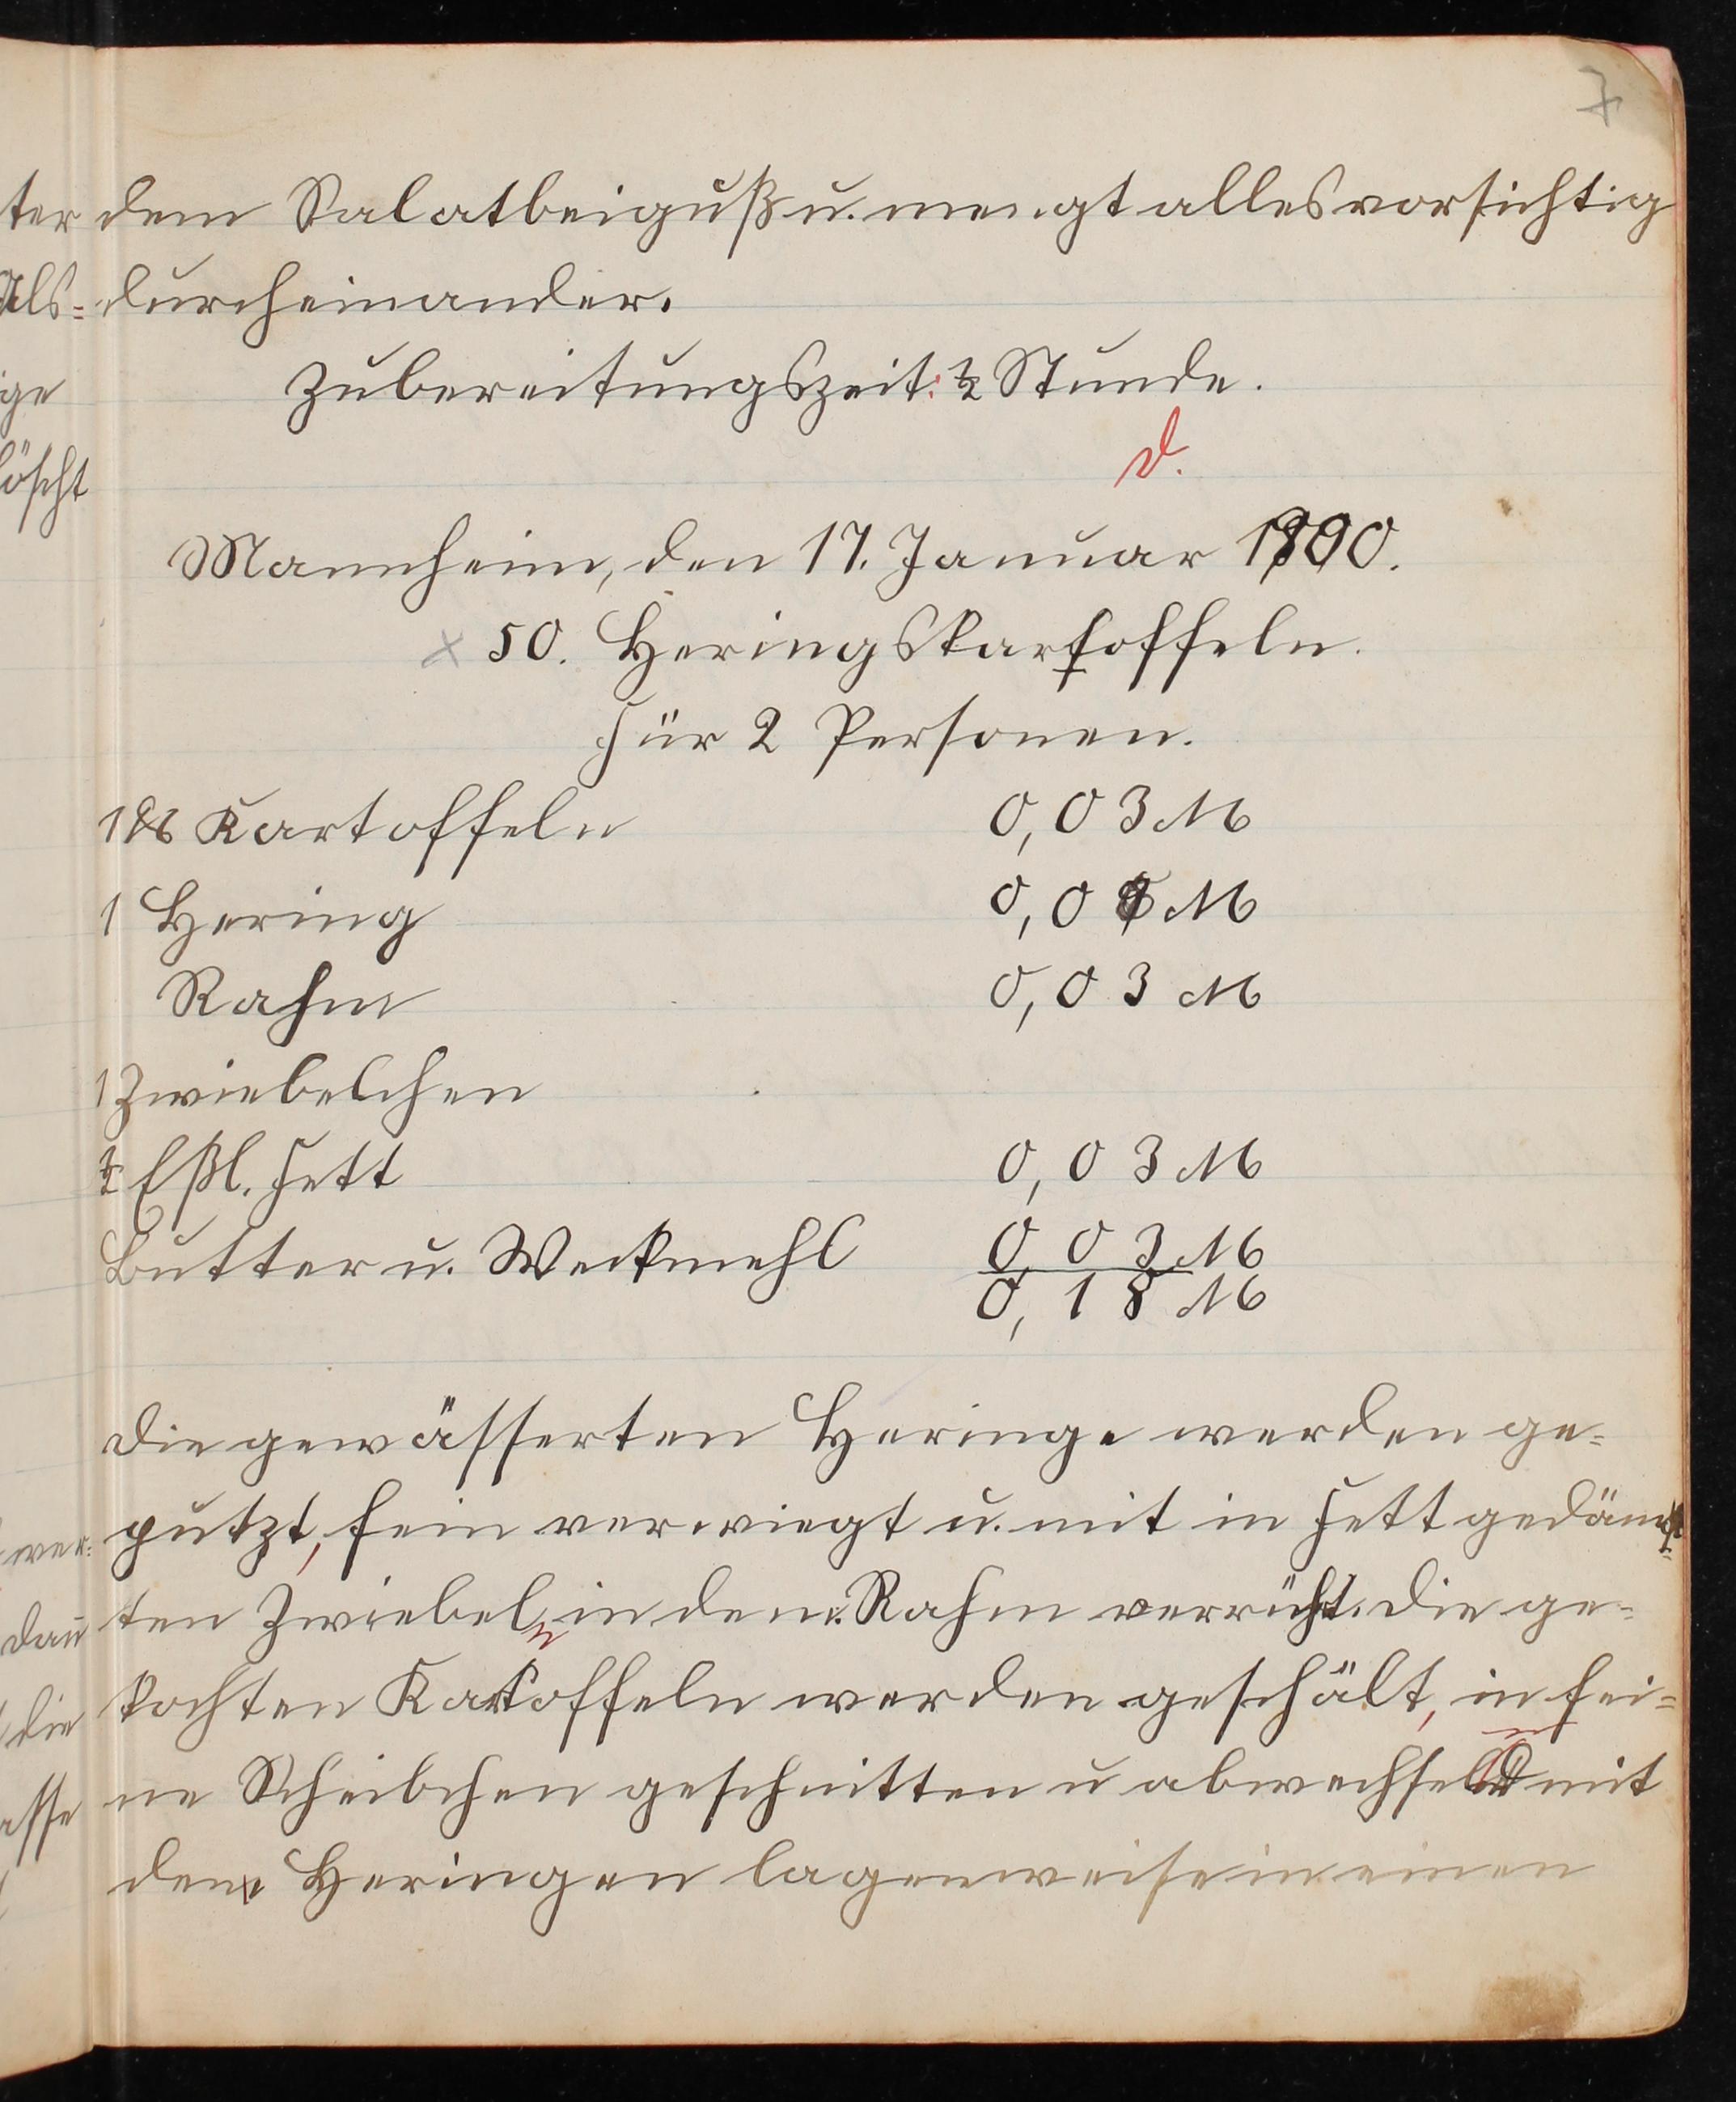 7
dem Salatbeiguß u. mengt alles vorsichtig
durcheinander.
Zubereitungszeit: ½ Stunde.
Mannheim, den 17. Januar 1900.
x 50. Heringskartoffeln.
Für 2 Personen.
1 ℔ Kartoffeln 0,03 M
1 Hering 0,06 M
Rahm 0,03 M
1 Zwiebelchen
½ Eßl. Fett 0,03 M
Butter u. Weckmehl 0,03 M
0,18 M
Die gewässerten Heringe werden ge-
putzt, fein verwiegt u. mit in Fett gedämpf-
ten Zwiebeln in dem Rahm verrührt. Die ge-
kochten Kartoffeln werden geschält, in fei-
ne Scheibchen geschnitten u abwechselnd mit
den Heringen lagenweise in einen
ter
Als-
ige
löscht
wer-
dan̅
die
asse